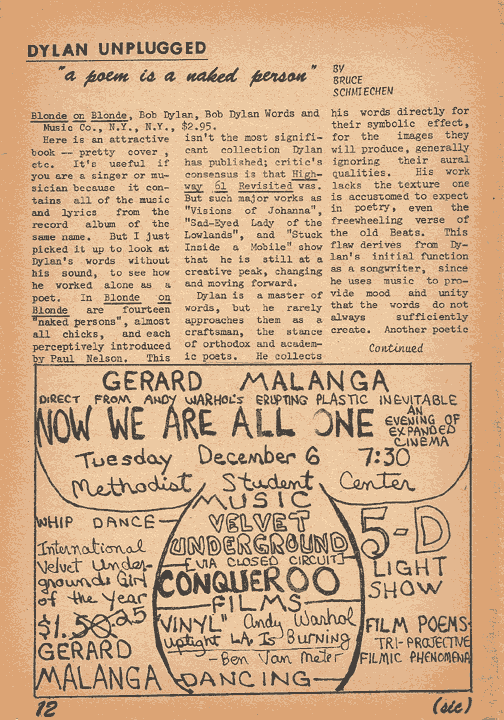 DYLAN UNPLUGGED
"a poem is a naked person"
BY
BRUCE
SCHMIECHEN
Blonde on Blonde, Bob Dylan, Bob Dylan Words and
Music Co., N.Y., N.Y., $2.95.
Here is an attractive
book -- pretty cover ,
etc. It's useful if
you are a singer or mu-
sician because it con-
tains all of the music
and lyrics from the
record album of the
same name. But I just
picked it up to look at
Dylan's words without
his sound, to see how
he worked alone as a
poet. In Blonde on
Blonde are fourteen
"naked persons", almost
all chicks, and each
perceptively introduced
by Paul Nelson. This
isn't the most signifi-
cant collection Dylan
has published; critic's
consensus is that High-
way 61 Revisited was.
But such major works as
"Visions of Johanna",
"Sad-Eyed Lady of the
Lowlands", and "Stuck
Inside a Mobile" show
that he is still at a
creative peak, changing
and moving forward.
Dylan is a master of
words, but he rarely
approaches them as a
craftsman, the stance
of orthodox and academ-
ic poets. He collects
his words directly for
their symbolic effect,
for the images they
will produce, generally
ignoring their aural
qualities. His work
lacks the texture one
is accustomed to expect
in poetry, even the
freewheeling verse of
the old Beats. This
flaw derives from Dy-
lan's initial function
as a songwriter, since
he uses music to pro-
vide mood and unity
that the words do not
always sufficiently
create. Another poetic
Continued
GERARD MALANGA
DIRECT FROM ANDY WARHOL'S ERUPTING PLASTIC INEVITABLE
NOW WE ARE ALL ONE
AN
EVENING OF
EXPANDED
CINEMA
Tuesday December 6 7:30
Methodist Student Center
MUSIC
VELVET
UNDERGROUND
[VIA CLOSED CIRCUIT]
CONQUEROO
FILMS
"VINYL" Andy Warhol
uptight LA Is Burning
-Ben Van Meter
DANCING
WHIP DANCE
International
Velvet Under-
grounds Girl
of the Year
$1.50 25
GERARD
MALANGA
5-D
LIGHT
SHOW
FILM POEMS
TRI-PROJECTIVE
FILMIC PHENOMENA
12
(sic)